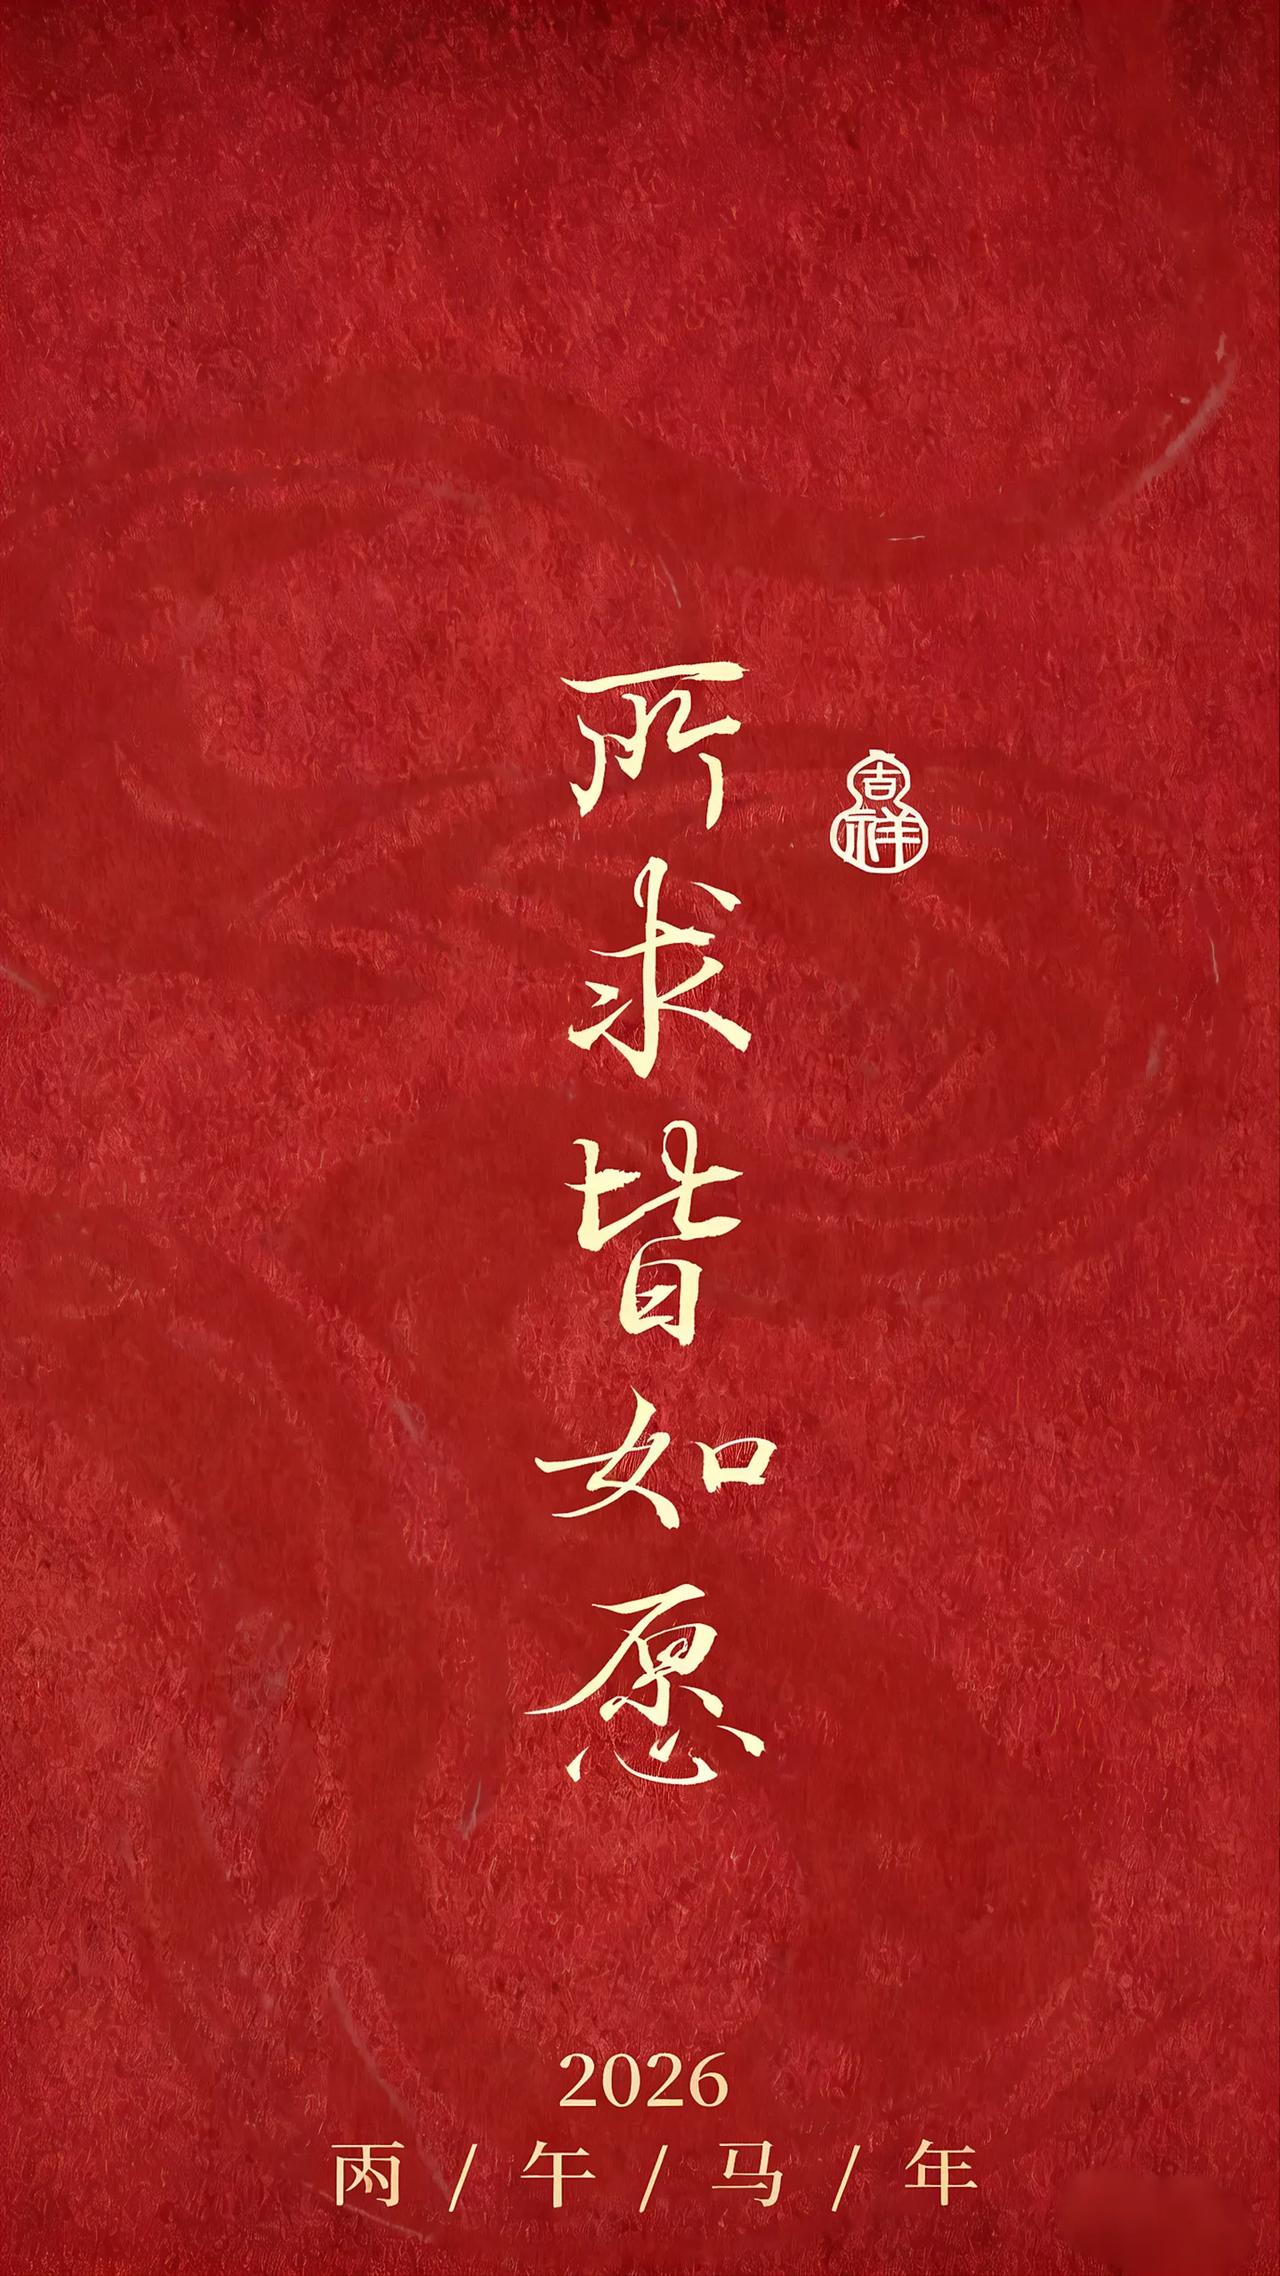 所求皆如愿
吉祥
2026
丙/午/马/年